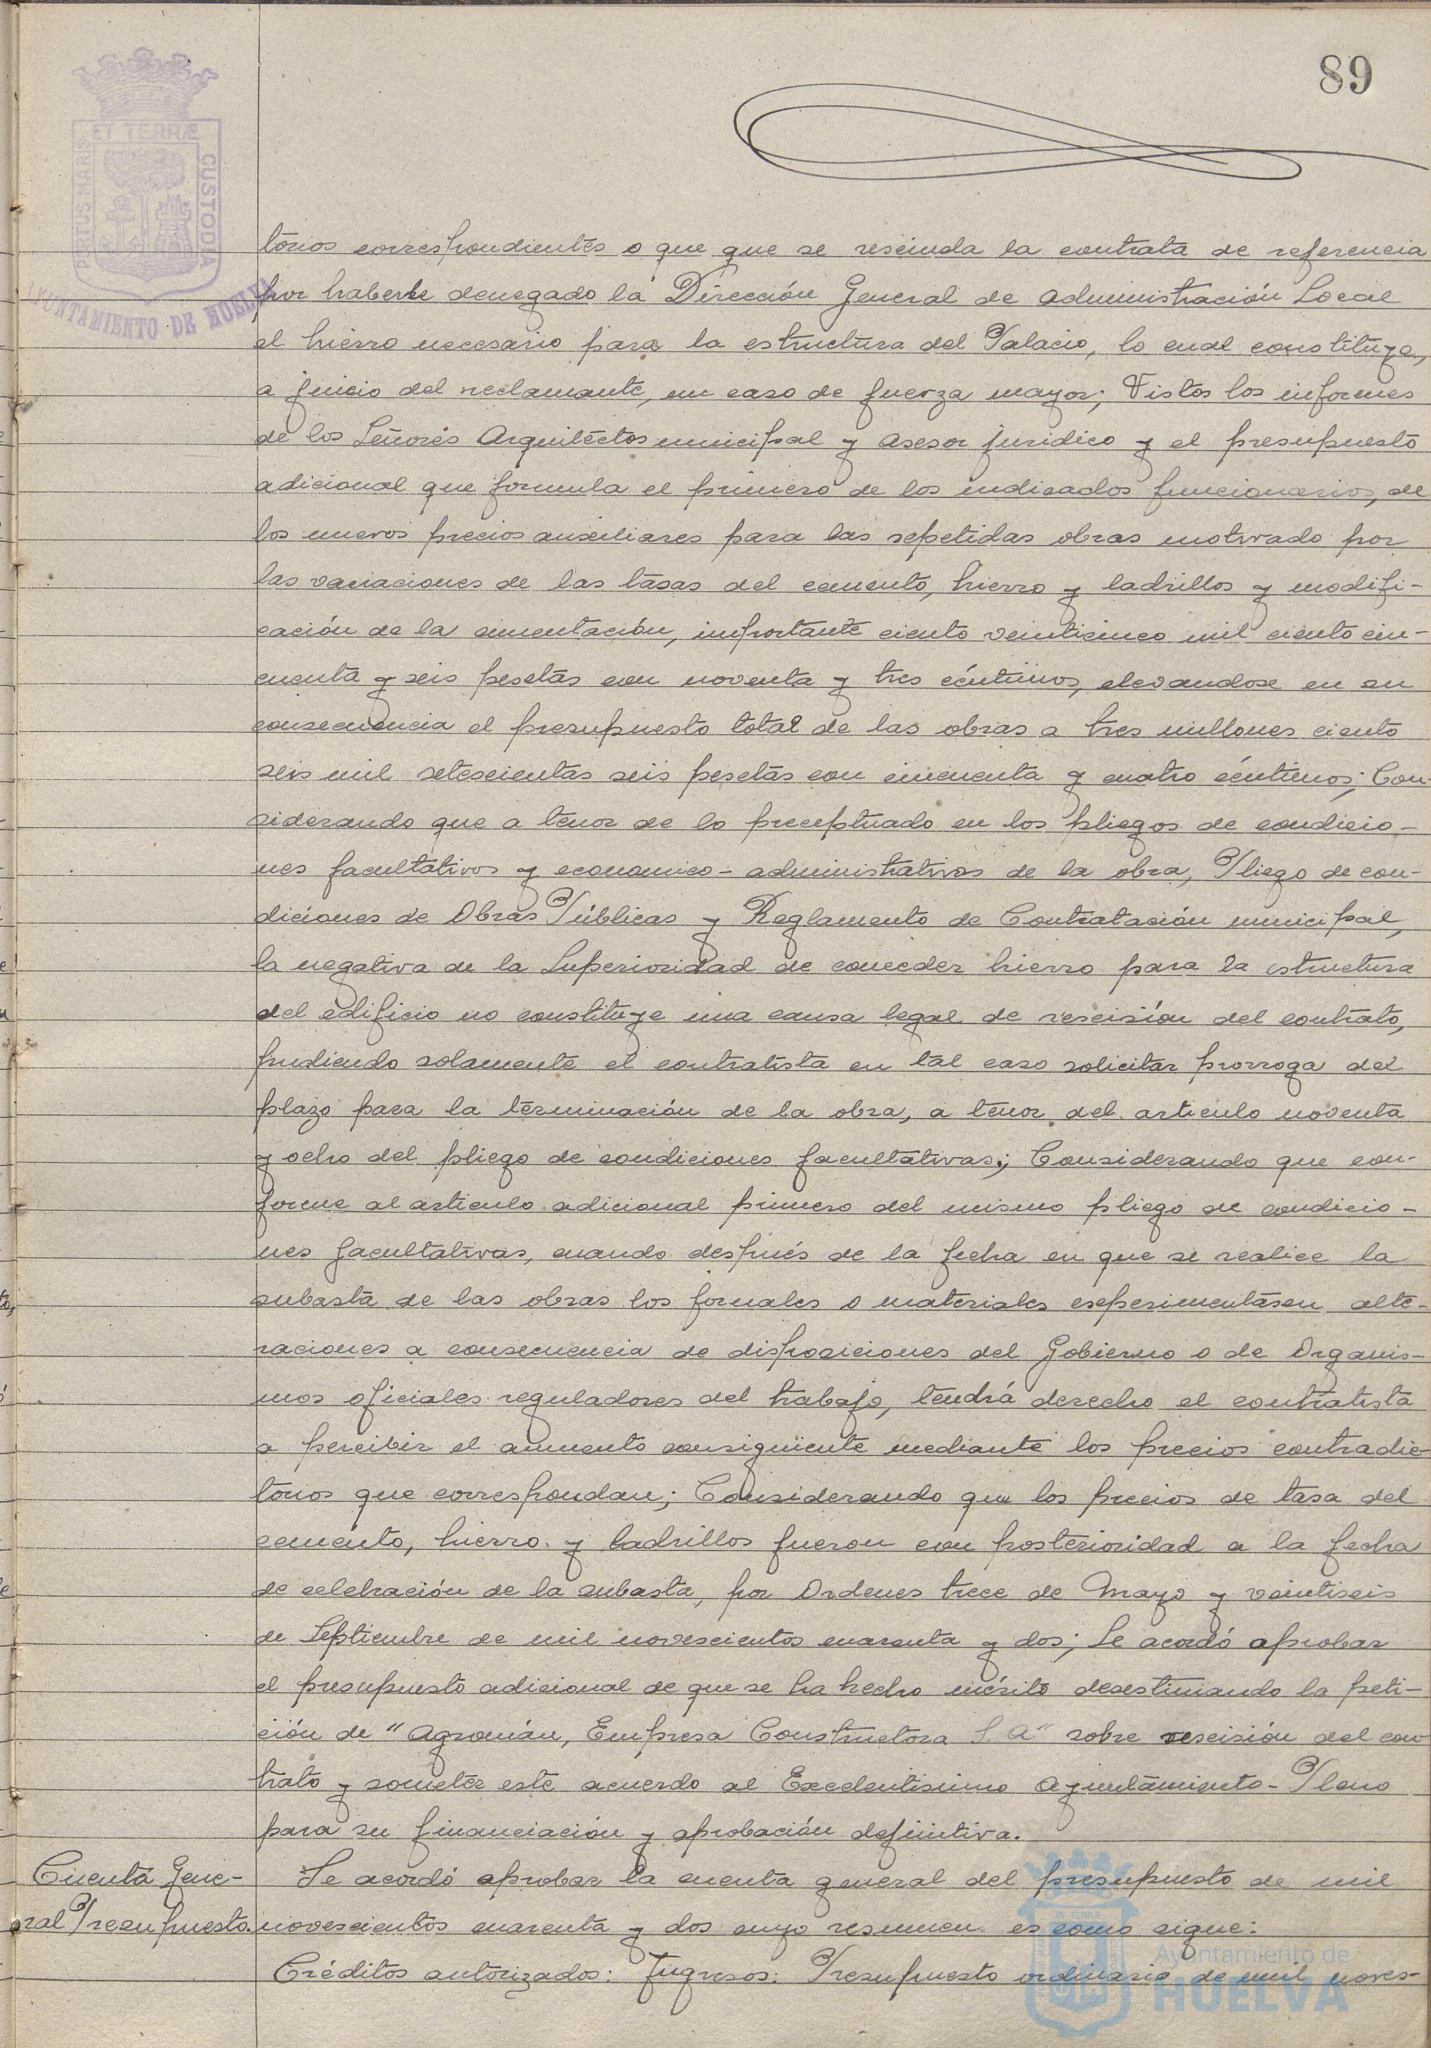 89
PORTUS MARIS ET TERRÆ CUSTODIA
AYUNTAMIENTO DE HUELVA
torios correspondientes o que que se rescinda la contrata de referencia
por haberle denegado la Dirección General de Administración Local
el hierro necesario para la estructura del Palacio, lo cual constituye,
a juicio del reclamante, un caso de fuerza mayor; Vistos los informes
de los Señores Arquitectos municipal y asesor juridico y el presupuesto
adicional que formula el primero de los indicados funcionarios, de
los nuevos precios auxiliares para las repetidas obras motivado por
las variaciones de las tasas del cemento, hierro y ladrillos y modifi-
cación de la cimentación, importante ciento veinticinco mil ciento cin-
cuenta y seis pesetas con noventa y tres céntimos, elevandose en su
consecuencia el presupuesto total de las obras a tres millones ciento
seis mil setescientas seis pesetas con cincuenta y cuatro céntimos; Con-
siderando que a tenor de lo preceptuado en los pliegos de condicio-
nes facultativos y economico-administrativas de la obra, Pliego de con-
diciones de Obras Públicas y Reglamento de Contratación municipal,
la negativa de la Superioridad de conceder hierro para la estructura
del edificio no constituye una causa legal de rescisión del contrato,
pudiendo solamente el contratista en tal caso solicitar prorroga del
plazo para la terminación de la obra, a tenor del articulo noventa
y ocho del pliego de condiciones facultativas; Considerando que con-
forme al articulo adicional primero del mismo pliego de condicio-
nes facultativas, cuando después de la fecha en que se realice la
subasta de las obras los jornales o materiales esperimentasen alte-
raciones a consecuencia de disposiciones del Gobierno o de Organis-
mos oficiales reguladores del trabajo, tendrá derecho el contratista
a percibir el aumento consiguiente mediante los precios contradic-
torios que correspondan; Considerando que los precios de tasa del
cemento, hierro y ladrillos fueron con posterioridad a la fecha
de celebración de la subasta, por Ordenes trece de Mayo y veintiseis
de Septiembre de mil novescientos cuarenta y dos; Se acordó aprobar
el presupuesto adicional de que se ha hecho mérito desestimando la peti-
ción de "Agromán, Empresa Constructora S.A" sobre rescisión del con-
trato y someter este acuerdo al Excelentisimo Ayuntamiento-Pleno
para su financiación y aprobación definitiva.
Cuenta Gene-
ral Presupuesto
Se acordó aprobar la cuenta general del presupuesto de mil
novescientos cuarenta y dos cuyo resumen es como sigue:
Créditos autorizados: Ingresos: Presupuesto ordinario de mil noves-
Ayuntamiento de
HUELVA